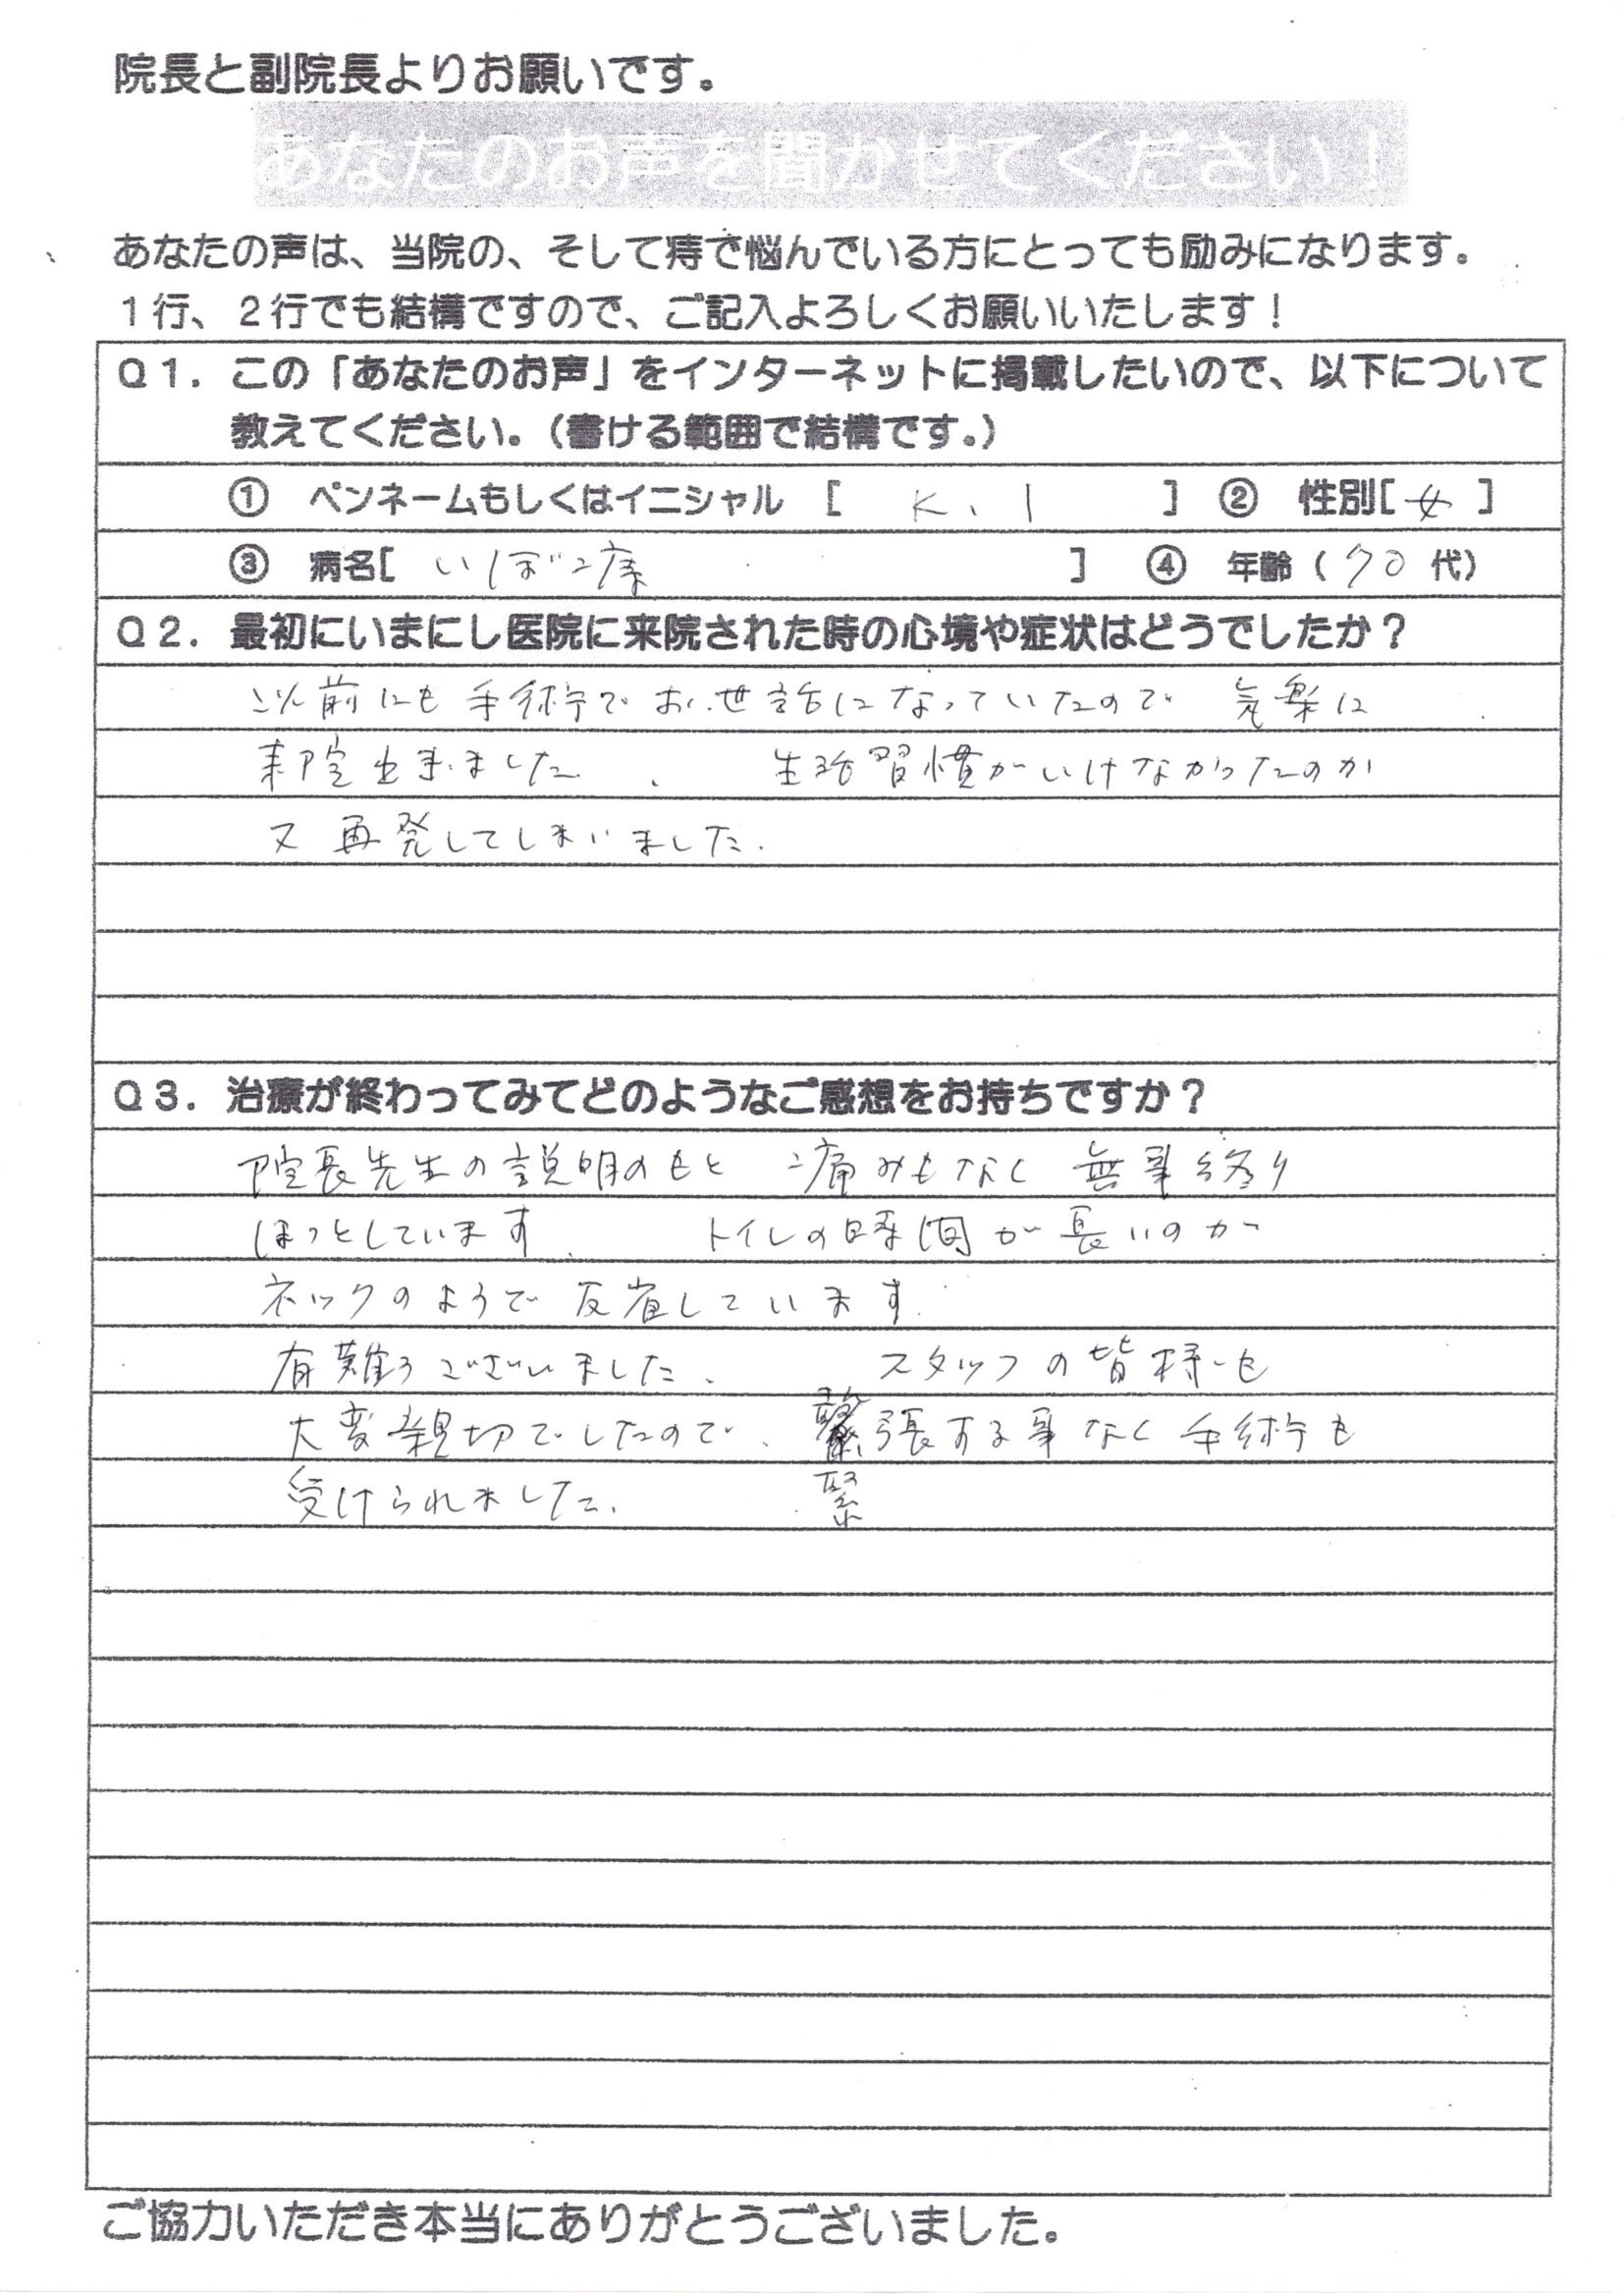 院長と副院長よりお願いです。
あなたのお声を聞かせてください！
あなたの声は、当院の、そして痔で悩んでいる方にとっても励みになります。
１行、２行でも結構ですので、ご記入よろしくお願いいたします！
Ｑ１．この「あなたのお声」をインターネットに掲載したいので、以下について
教えてください。（書ける範囲で結構です。）
① ペンネームもしくはイニシャル [ K.I ] ② 性別[ 女 ]
③ 病名[ いぼ痔 ] ④ 年齢（70 代）
Ｑ２．最初にいまにし医院に来院された時の心境や症状はどうでしたか？
以前にも手術でお世話になっていたので 気楽に
来院出来ました、 生活習慣がいけなかったのか
又 再発してしまいました.
Ｑ３．治療が終わってみてどのようなご感想をお持ちですか？
院長先生の説明のもと 痛みもなく 無事終り
ほっとしています、 トイレの時間が長いのが
ネックのようで 反省しています.
有難うございました、 スタッフの皆様も
大変親切でしたので、緊張する事なく手術も
受けられました、 緊
ご協力いただき本当にありがとうございました。